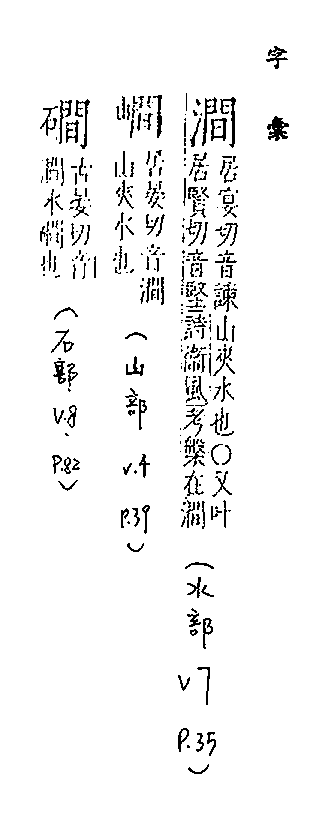 字彙
澗
居宴切音諫山夾水也○又叶
居賢切音堅詩衞風考槃在澗
(水部 v7 P.35)
㵎
居晏切音澗
山夾水也
(山部 v.4 P.39)
礀
古晏切音
澗水礀也
(石部 v.8. P.82)